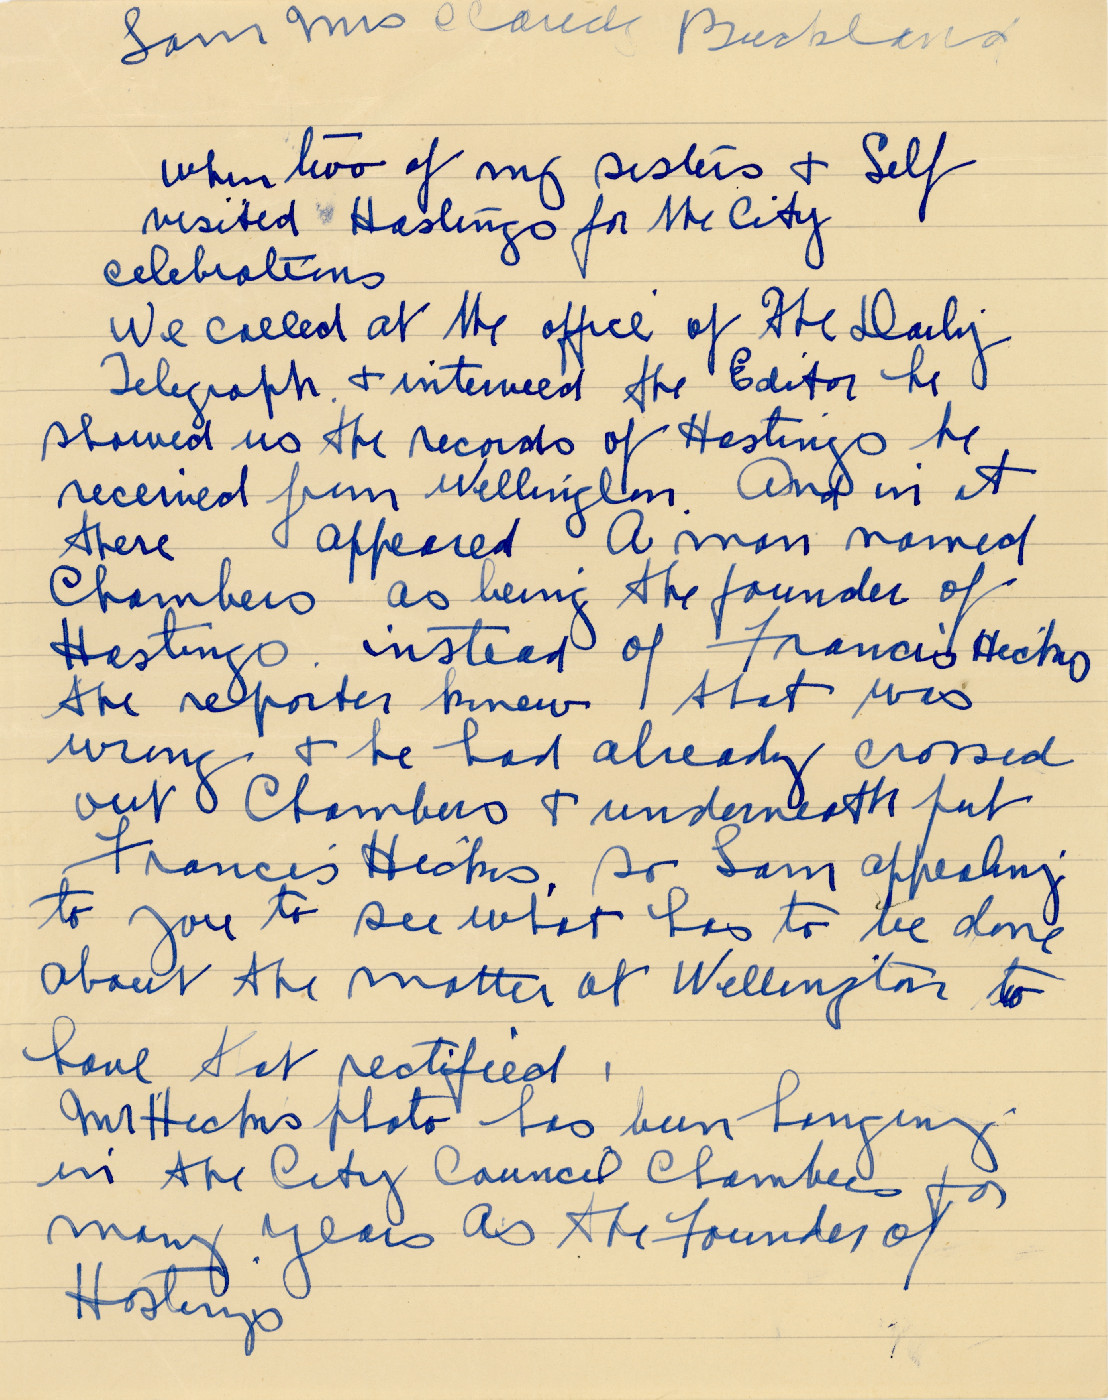 I am Mrs Claude Buckland
when two of my sisters & Self
visited Hastings for the City
celebrations
We called at the office of The Daily
Telegraph. & interveed the Editor he
showed us the records of Hastings he
received from Wellington. And in it
there appeared A man named
Chambers as being the founder of
Hastings. instead of Francis Hicks
the reporter knew that was
wrong. & he had already crossed
out Chambers & underneath put
Francis Hicks. So I am appealing
to you to see what has to be done
about the matter at Wellington to
have that rectified.
Mr Hicks photo has been hanging
in the City Council Chambers for
many years As the Founder of
Hastings